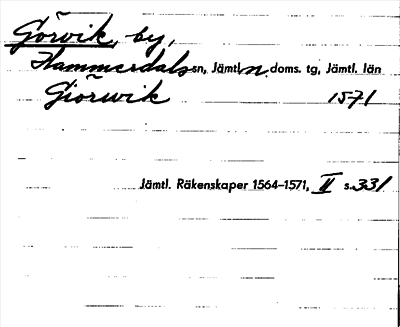 Görvik, by,
Hammerdals sn, Jämtl. n. doms. tg, Jämtl. län
Giörwik 1571
Jämtl. Räkenskaper 1564-1571, II s. 331